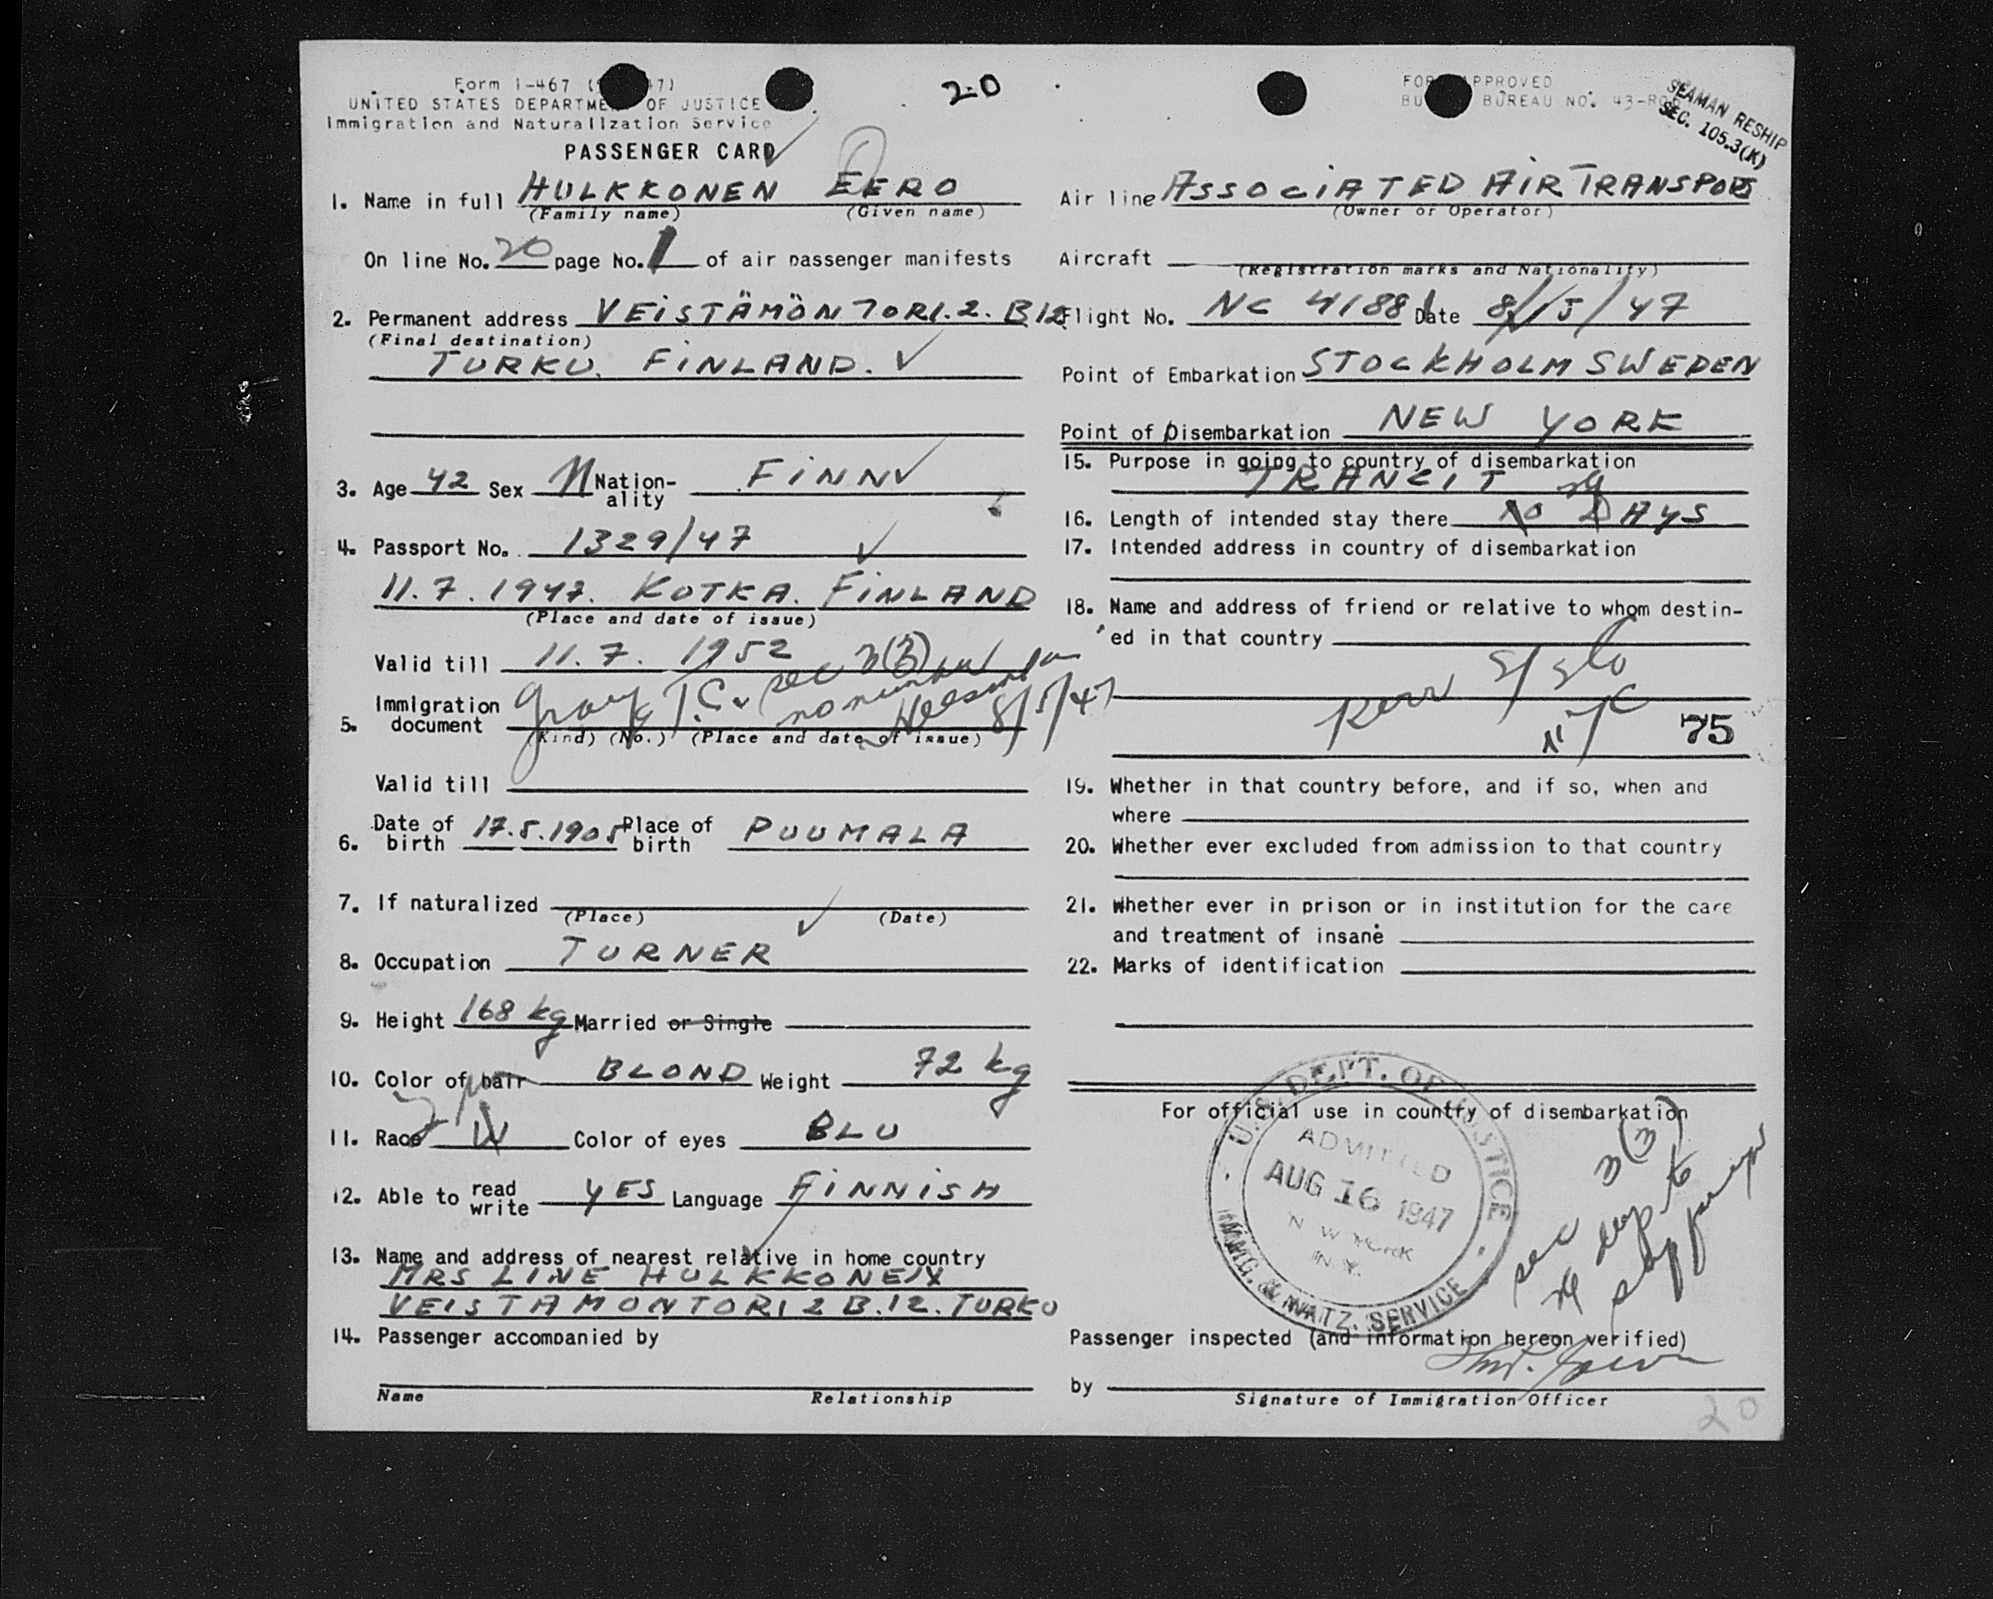 Form I-467 ( 7)
UNITED STATES DEPARTMENT OF JUSTICE
Immigration and Naturalization Service
PASSENGER CARD
20
FORM APPROVED
BU BUREAU NO. 43-R
SEAMAN RESHIP
SEC. 105.3(K)
1. Name in full HULKKONEN EERO
(Family name) (Given name)
On line No. 20 page No. 1 of air passenger manifests
2. Permanent address VEISTÄMÖN TORI. 2. B 12
(Final destination)
TURKU. FINLAND.
3. Age 42 Sex M Nation-
ality FINN
4. Passport No. 1329/47
11.7.1947. KOTKA. FINLAND
(Place and date of issue)
Valid till 11.7. 1952
5. Immigration
document T.C. sec 3(3) no number 8/5/47
(Kind) (No.) (Place and date of issue)
Valid till
6. Date of
birth 17.5.1905 Place of
birth PUUMALA
7. If naturalized
(Place) (Date)
8. Occupation TURNER
9. Height 168 kg Married or Single
10. Color of hair BLOND Weight 72 kg
11. Race W Color of eyes BLU
12. Able to read
write YES Language FINNISH
13. Name and address of nearest relative in home country
MRS LINE HULKKONEN
VEISTAMONTORI 2 B.12. TURKU
14. Passenger accompanied by
Name Relationship
Air line ASSOCIATED AIR TRANSPORTS
(Owner or Operator)
Aircraft
(Registration marks and Nationality)
Flight No. NC 4188 Date 8/15/47
Point of Embarkation STOCKHOLM SWEDEN
Point of Disembarkation NEW YORK
15. Purpose in going to country of disembarkation
TRANCIT
16. Length of intended stay there DAYS
17. Intended address in country of disembarkation
18. Name and address of friend or relative to whom destin-
ed in that country
NYC
75
19. Whether in that country before, and if so, when and
where
20. Whether ever excluded from admission to that country
21. Whether ever in prison or in institution for the care
and treatment of insane
22. Marks of identification
For official use in country of disembarkation
U.S. DEPT. OF JUSTICE
ADMITTED
AUG 16 1947
NEW YORK
N.Y.
IMMIG. & NATZ. SERVICE
sec 3(3)
Passenger inspected (and information hereon verified)
by
Signature of Immigration Officer
20